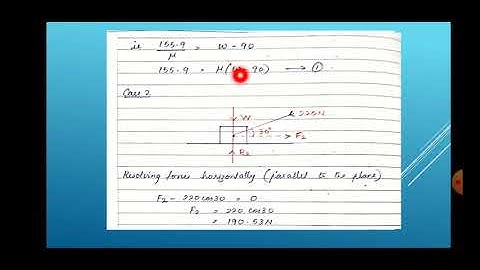 ie 155.9 / μ = W - 90
155.9 = μ(W - 90) → ①
Case 2
W
220N
30°
F2
R2
Resolving forces horizontally (parallel to the plane)
F2 - 220 cos 30 = 0
F2 = 220 cos 30
= 190.53N